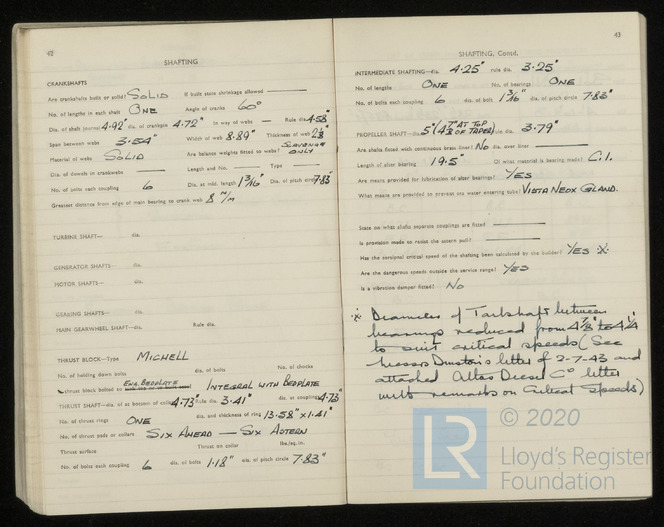 42
SHAFTING
CRANKSHAFTS
Are crankshafts built or solid? SOLID If built state shrinkage allowed —
No. of lengths in each shaft ONE Angle of cranks 60°
Dia. of shaft journal 4.92" dia. of crankpin 4.72" in way of webs — Rule dia. 4.58"
Span between webs 3.54" Width of web 8.89" Thickness of web
Material of webs SOLID Are balance weights fitted to webs? ONLY
Dia. of dowels in crankwebs — Length and No. — Type —
No. of bolts each coupling 6 Dia. at mid. length 1 3/16" Dia. of pitch circle 7.83"
Greatest distance from edge of main bearing to crank web 8 M/M
TURBINE SHAFT— dia.
GENERATOR SHAFTS— dia.
MOTOR SHAFTS— dia.
GEARING SHAFTS— dia.
MAIN GEARWHEEL SHAFT— dia. Rule dia.
THRUST BLOCK—Type MICHELL
No. of holding down bolts dia. of bolts No. of chocks
Is thrust block bolted to ENG. BEDPLATE INTEGRAL WITH BEDPLATE
THRUST SHAFT—dia. at bottom of collar 4.73" Rule dia. 3.41" dia. at coupling 4.73"
No. of thrust rings ONE dia. and thickness of ring 13.58" × 1.41"
No. of thrust pads or collars SIX AHEAD — SIX ASTERN
Thrust surface Thrust on collar lbs./sq. in.
No. of bolts each coupling 6 dia. of bolts 1.18" dia. of pitch circle 7.83"
43
SHAFTING, Contd.
INTERMEDIATE SHAFTING—dia. 4.25" rule dia. 3.25"
No. of lengths ONE No. of bearings ONE
No. of bolts each coupling 6 dia. of bolt 1 3/16" dia. of pitch circle 7.83"
PROPELLER SHAFT—dia. 5" (4 7/8" AT TOP OF TAPER) rule dia. 3.79"
Are shafts fitted with continuous brass liner? NO dia. over liner —
Length of after bearing 19.5" Of what material is bearing made? C.I.
Are means provided for lubrication of after bearings? YES
What means are provided to prevent sea water entering tube? VISTA NEOX GLAND.
State on what shafts separate couplings are fitted —
Is provision made to resist the astern pull? —
Has the torsional critical speed of the shafting been calculated by the builder? YES ※
Are the dangerous speeds outside the service range? YES
Is a vibration damper fitted? NO
※ Diameter of Tailshaft between
bearings reduced from 4 7/8" to 4 1/4"
to suit critical speeds (See
Messrs Dunston's letter of 2-7-43 and
attached Atlas Diesel Co letter
with remarks on Critical Speeds)
LR © 2020
Lloyd's Register
Foundation